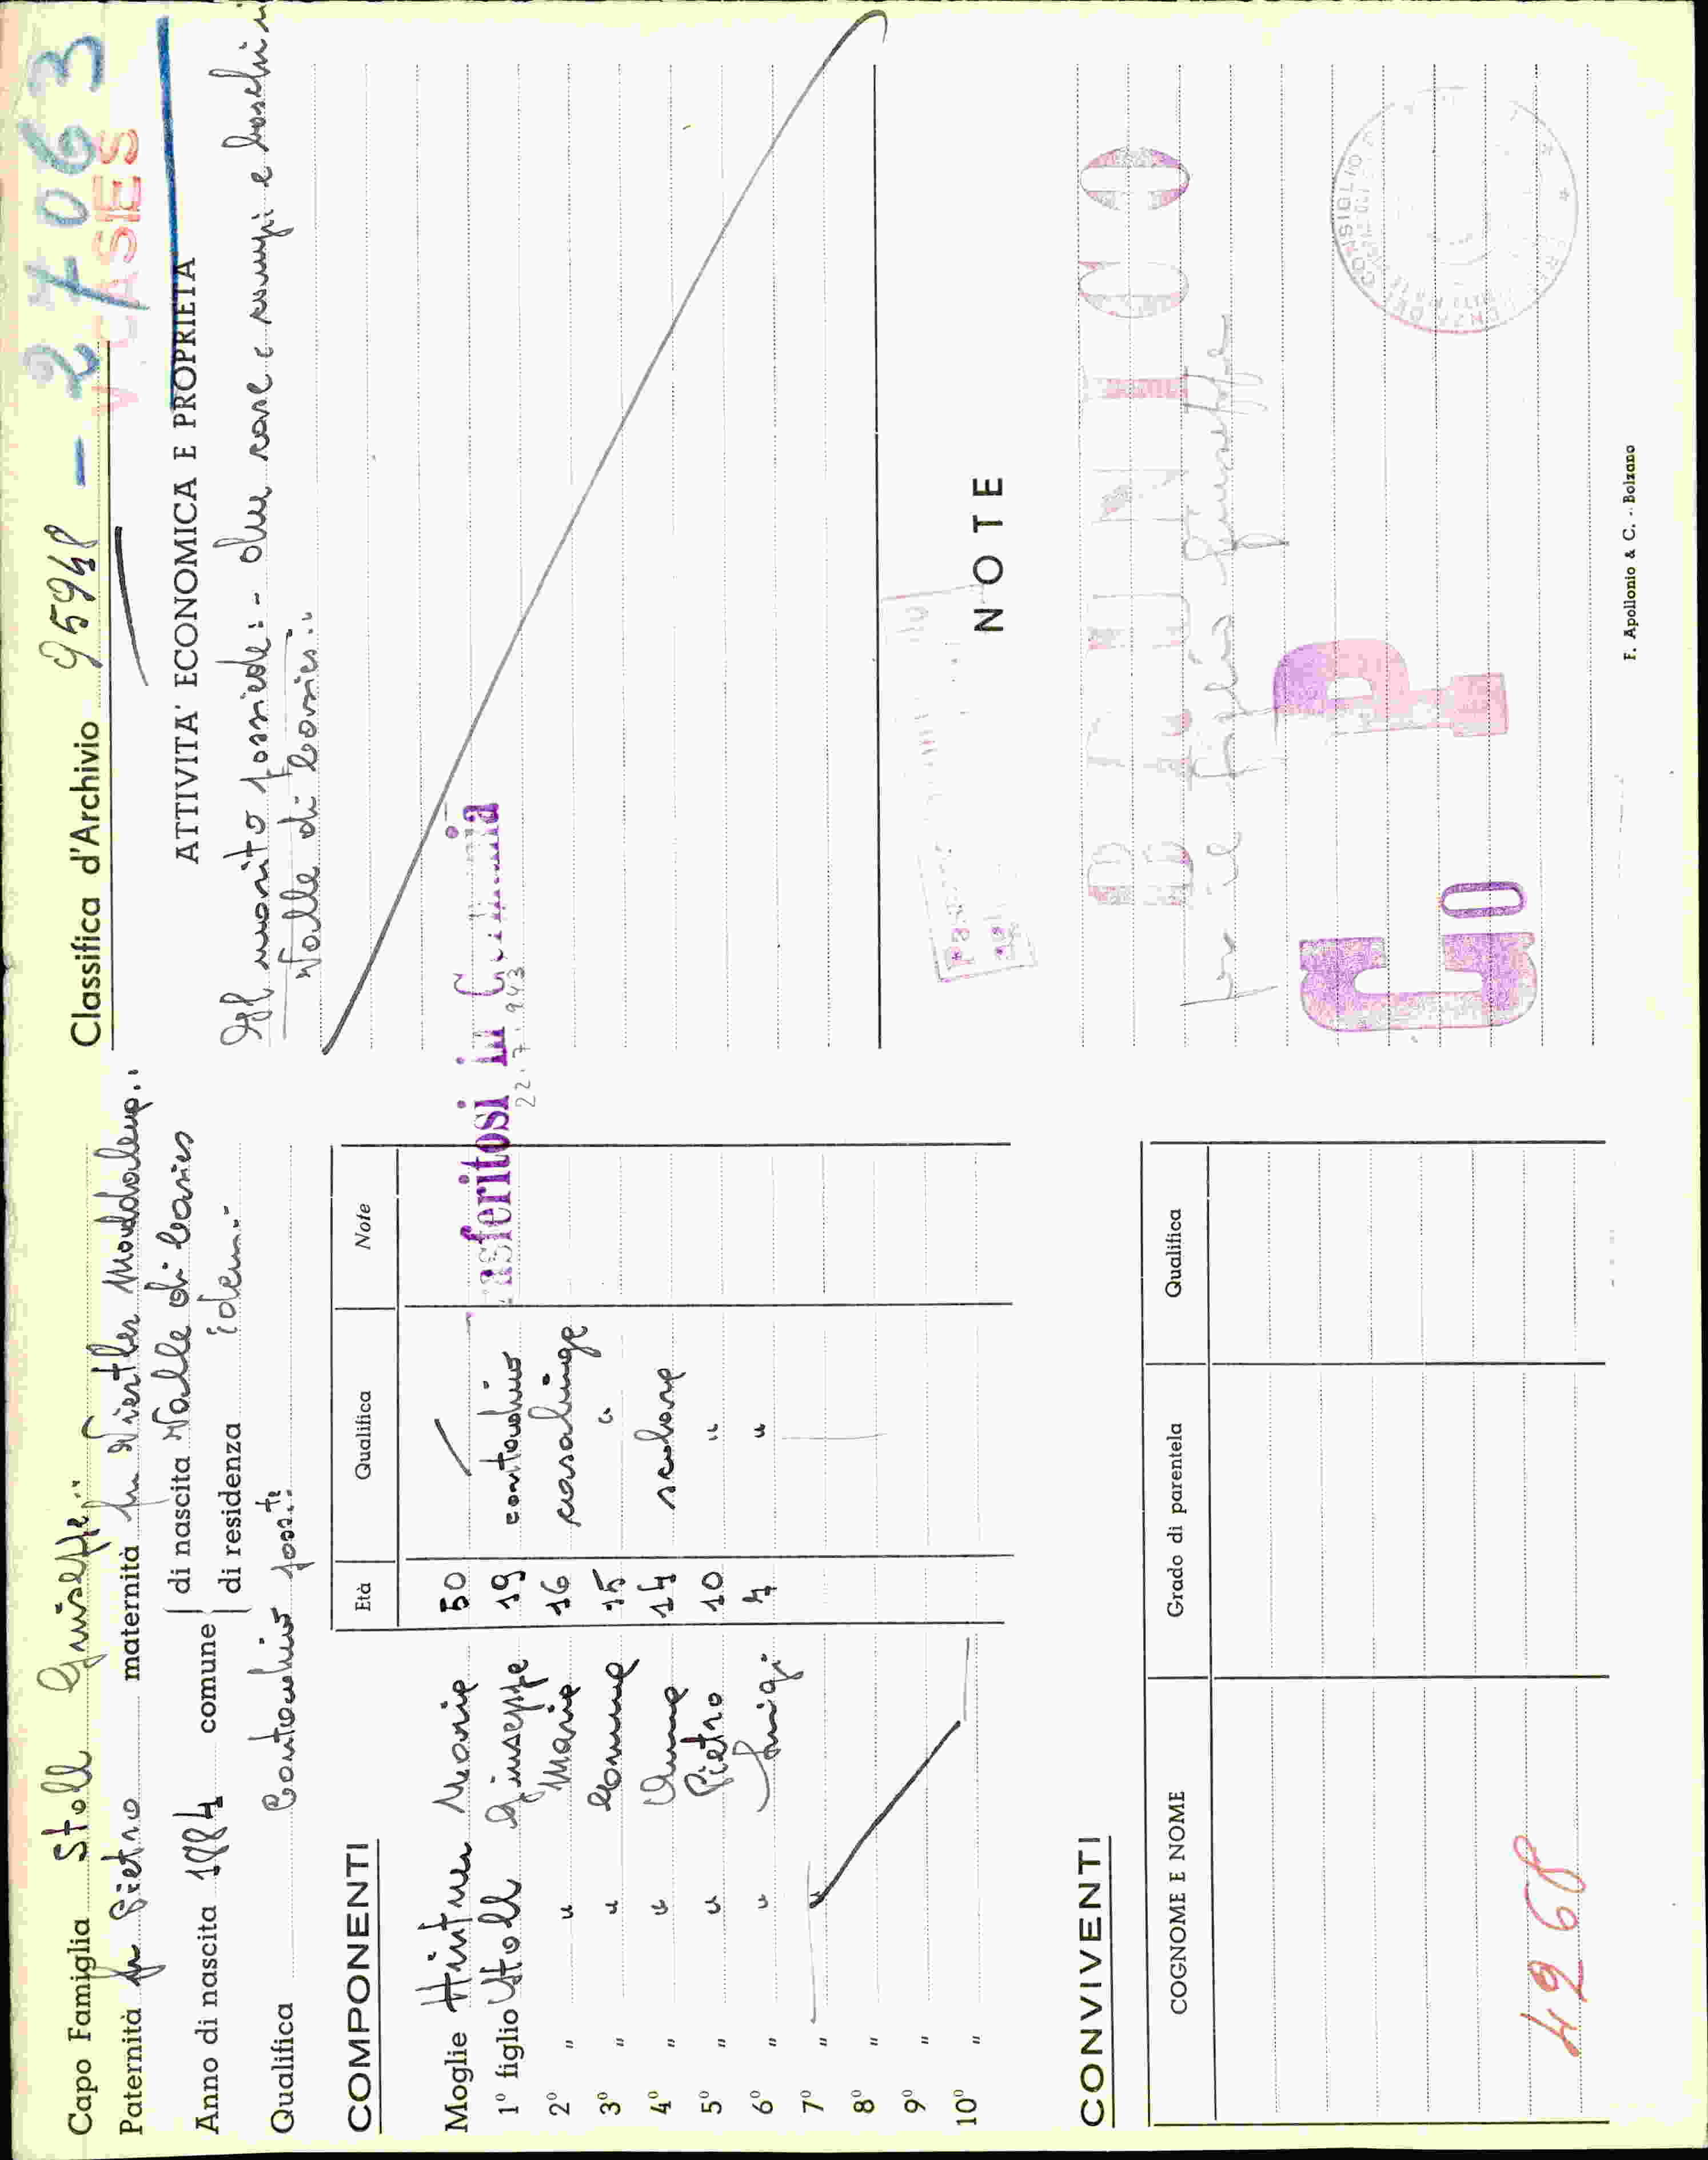 Capo Famiglia Stoll Giuseppe
Paternità fu Pietro maternità fu Viertler Maddalena
Anno di nascita 1884 comune
di nascita Valle di Casies
di residenza idem
Qualifica Contadino
COMPONENTI
Età Qualifica Note
Moglie Hintner Maria 50
1º figlio Stoll Giuseppe 19 contadino
2º " " Maria 16 casalinga
3º " " 15 "
4º " " Anna 14 scolara
5º " " Pietro 10 "
6º " " Luigi 7 "
7º "
8º "
9º "
10º "
CONVIVENTI
COGNOME E NOME Grado di parentela Qualifica
4268
Classifica d'Archivio 95948 - 27063
V. CASIES
ATTIVITA' ECONOMICA E PROPRIETÀ
Il marito possiede: - due case e campi e boschi in
Valle di Casies.
asferitosi in Germania
22.7.943
NOTE
per il figlio Giuseppe
CONSIGLIO
F. Apollonio & C. - Bolzano